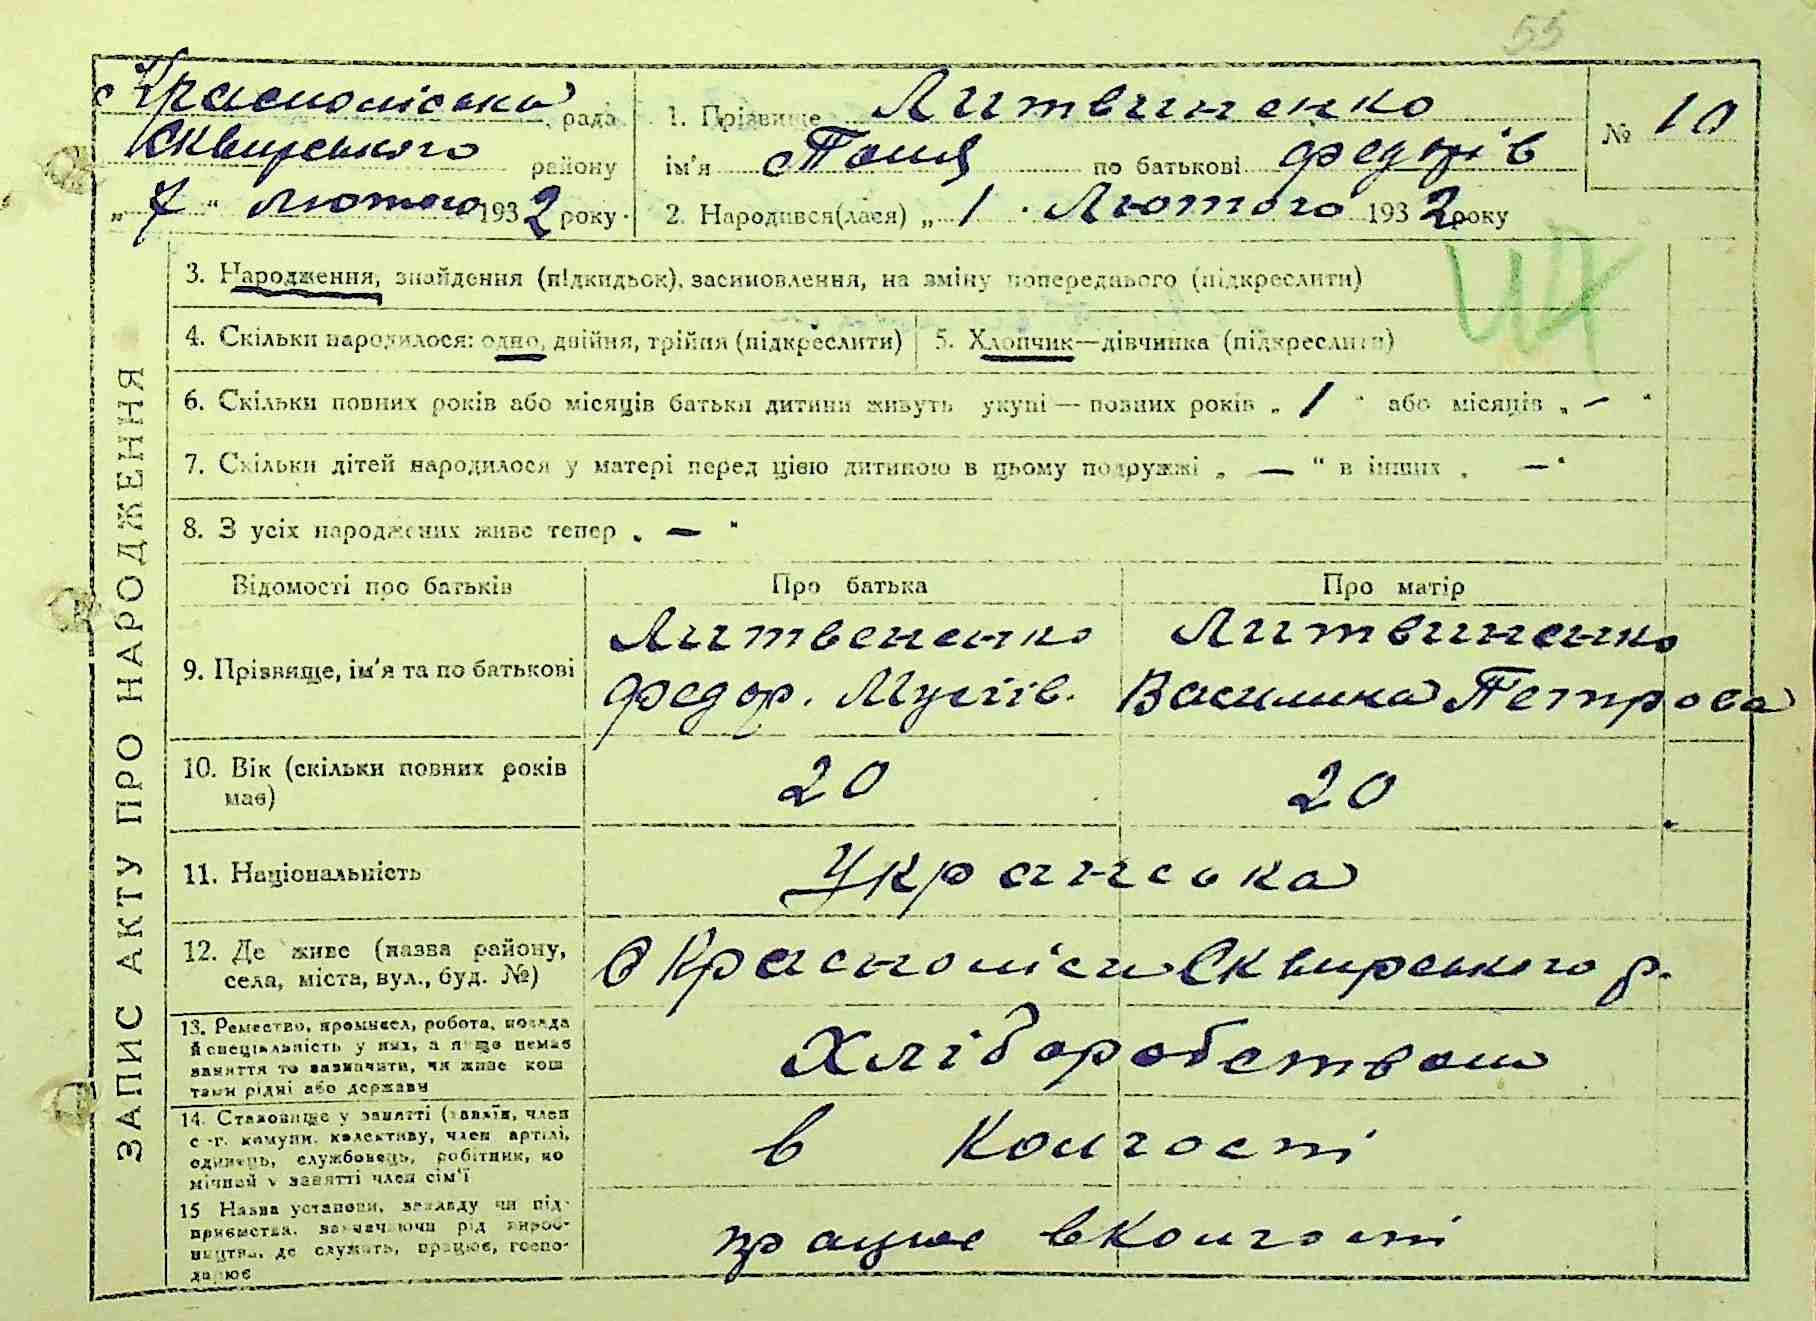 55
Краснолісська рада
Сквирського району
„ 7 “ лютого 1932 року.
1. Прізвище Литвиненко
ім'я Толя по батькові Федорів
2. Народився(лася) „ 1 . Лютого 1932 року
№ 10
ЗАПИС АКТУ ПРО НАРОДЖЕННЯ
3. Народження, знайдення (підкидьок), засиновлення, на зміну попереднього (підкреслити)
4. Скільки народилося: одно, двійня, трійня (підкреслити)
5. Хлопчик—дівчинка (підкреслити)
6. Скільки повних років або місяців батьки дитини живуть укупі — повних років „ 1 “ або місяців „ — “
7. Скільки дітей народилося у матері перед цією дитиною в цьому подружжі „ — “ в інших „ — “
8. З усіх народжених живе тепер „ — “
Відомості про батьків Про батька Про матір
9. Прізвище, ім'я та по батькові
Литвененко
Федор. Мусіїв.
Литвиненко
Василина Петрова
10. Вік (скільки повних років має) 20 20
11. Національність Українська
12. Де живе (назва району,
села, міста, вул., буд. №)
с Красноліси Сквирського р.
13. Ремество, промисел, робота, посада
й спеціяльність у них, а якщо немає
заняття то зазначити, чи живе кош
тами рідні або держави
Хліборобством
14. Становище у занятті (хазяїн, член
с.-г. комуни, колективу, член артілі,
одинець, службовець, робітник, по
мічний у занятті член сім'ї
в Колгоспі
15 Назва установи, закладу чи під-
приємства, зазначаючи рід вироб-
ництва, де служить, працює, госпо-
дарює
працює в Колгоспі